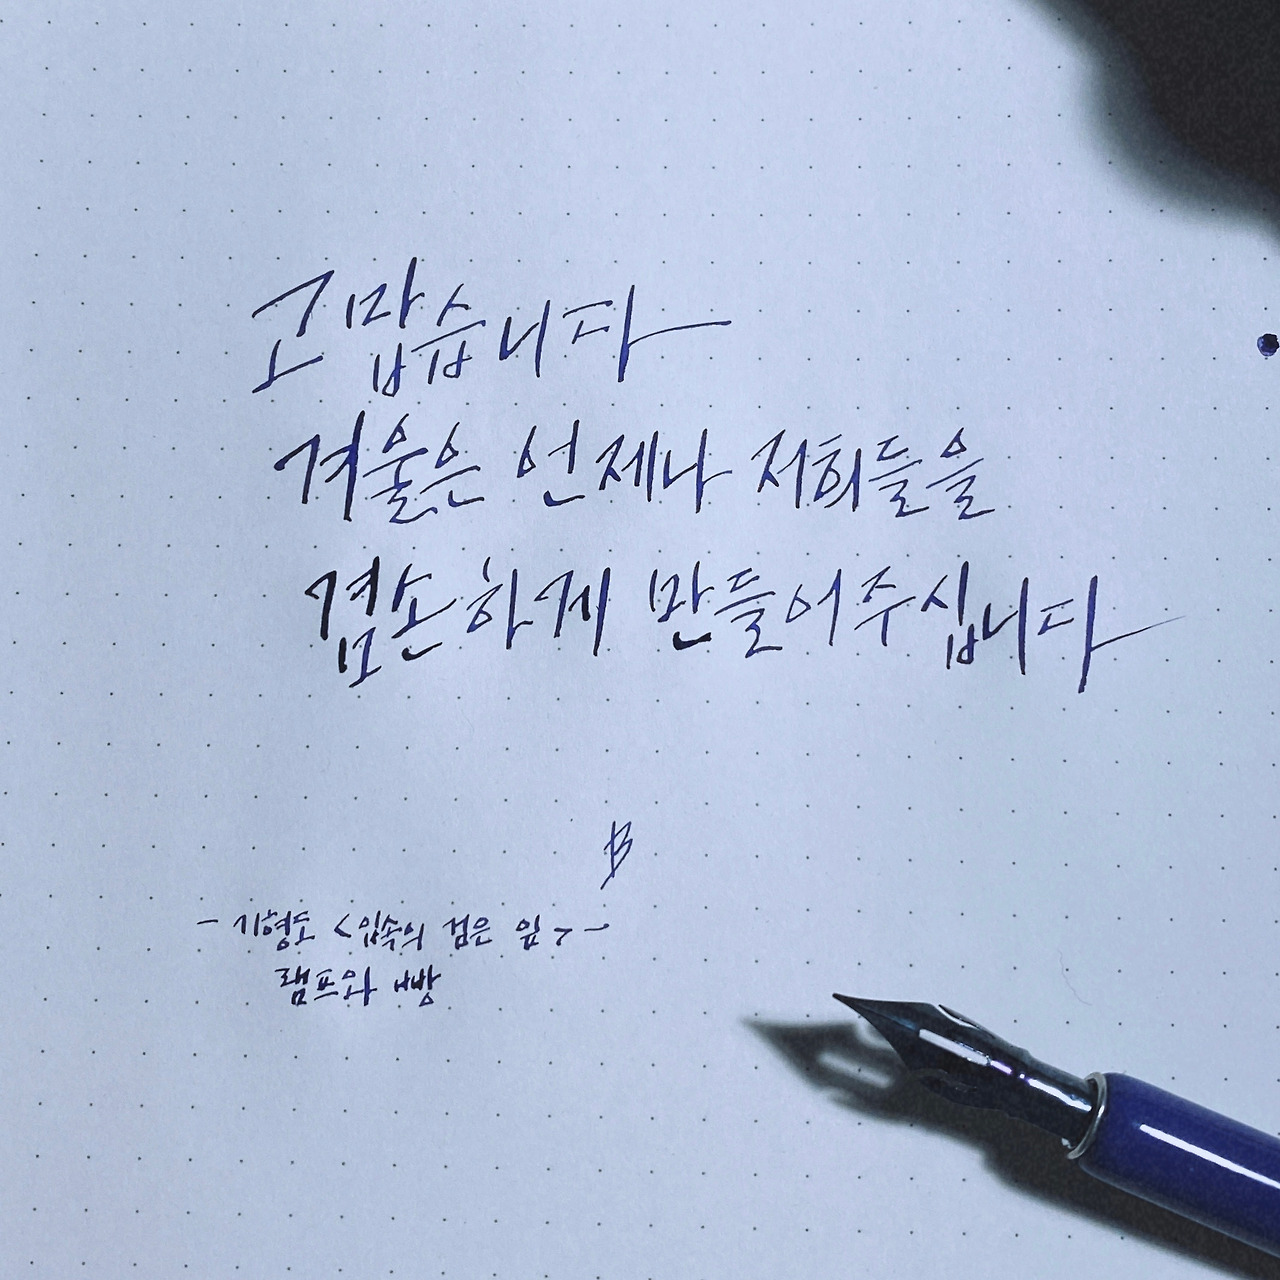 고맙습니다
겨울은 언제나 저희들을
겸손하게 만들어주십니다
B
- 기형도 <입속의 검은 잎> -
램프와 빵